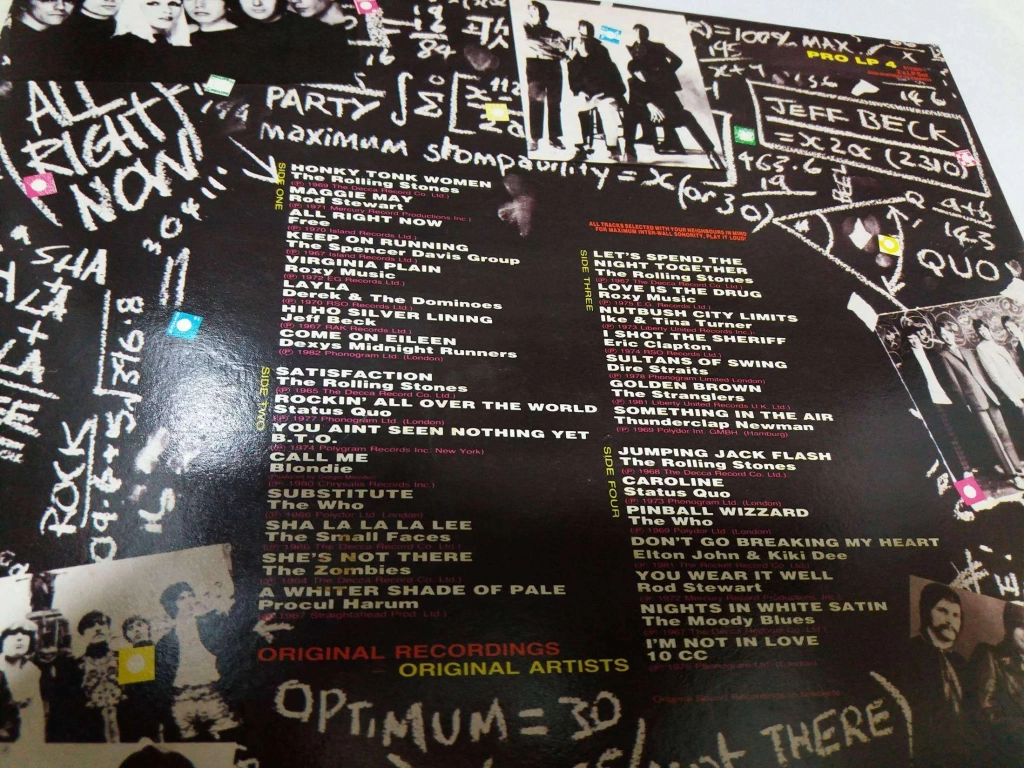 PRO LP 4
=100% MAX.
ALL
RIGHT
NOW!
PARTY
MAXIMUM STOMPABILITY = X (or 30)
JEFF BECK
= X2α (2310)
463.6
19
QUO
304
396.8
ROCK
ALL TRACKS SELECTED WITH YOUR NEIGHBOURS IN MIND
FOR MAXIMUM INTER-WALL SONORITY, PLAY IT LOUD!
SIDE ONE
HONKY TONK WOMEN
The Rolling Stones
(P) 1969 The Decca Record Co. Ltd.)
MAGGIE MAY
Rod Stewart
(P) 1971 Mercury Record Productions Inc.)
ALL RIGHT NOW
Free
(P) 1970 Island Records Ltd.)
KEEP ON RUNNING
The Spencer Davis Group
(P) 1967 Island Records Ltd.)
VIRGINIA PLAIN
Roxy Music
(P) 1972 EG Records Ltd.)
LAYLA
Derek & The Dominoes
(P) 1970 RSO Records Ltd.)
HI HO SILVER LINING
Jeff Beck
(P) 1967 RAK Records Ltd.)
COME ON EILEEN
Dexys Midnight Runners
(P) 1982 Phonogram Ltd. (London)
SIDE TWO
SATISFACTION
The Rolling Stones
(P) 1965 The Decca Record Co. Ltd.)
ROCKIN' ALL OVER THE WORLD
Status Quo
(P) 1977 Phonogram Ltd. (London)
YOU AINT SEEN NOTHING YET
B.T.O.
(P) 1974 Polygram Records Inc. New York)
CALL ME
Blondie
(P) 1980 Chrysalis Records Inc.)
SUBSTITUTE
The Who
(P) 1966 Polydor Ltd. (London)
SHA LA LA LA LEE
The Small Faces
(P) 1966 The Decca Record Co. Ltd.)
SHE'S NOT HERE
The Zombies
(P) 1964 The Decca Record Co. Ltd.)
A WHITER SHADE OF PALE
Procul Harum
(P) 1967 Straightahead Prod. Ltd.)
SIDE THREE
LET'S SPEND THE
NIGHT TOGETHER
The Rolling Stones
(P) 1967 The Decca Record Co. Ltd.)
LOVE IS THE DRUG
Roxy Music
(P) 1975 E.G. Records Ltd.)
NUTBUSH CITY LIMITS
Ike & Tina Turner
(P) 1973 Liberty United Records Inc.)
I SHOT THE SHERIFF
Eric Clapton
(P) 1974 RSO Records Ltd.)
SULTANS OF SWING
Dire Straits
(P) 1978 Phonogram Limited London)
GOLDEN BROWN
The Stranglers
(P) 1981 Liberty United Records U.K. Ltd.)
SOMETHING IN THE AIR
Thunderclap Newman
(P) 1969 Polydor Int. GMBH. (Hamburg)
SIDE FOUR
JUMPING JACK FLASH
The Rolling Stones
(P) 1968 The Decca Record Co. Ltd.)
CAROLINE
Status Quo
(P) 1973 Phonogram Ltd. (London)
PINBALL WIZZARD
The Who
(P) 1969 Polydor Ltd. (London)
DON'T GO BREAKING MY HEART
Elton John & Kiki Dee
(P) 1981 The Rocket Record Co. Ltd.)
YOU WEAR IT WELL
Rod Stewart
(P) 1972 Mercury Record Productions, Inc.)
NIGHTS IN WHITE SATIN
The Moody Blues
(P) 1967 The Decca Record Co. Ltd.)
I'M NOT IN LOVE
10 CC
(P) 1975 Phonogram Ltd. (London)
ORIGINAL RECORDINGS
ORIGINAL ARTISTS
OPTIMUM = 30
THERE)